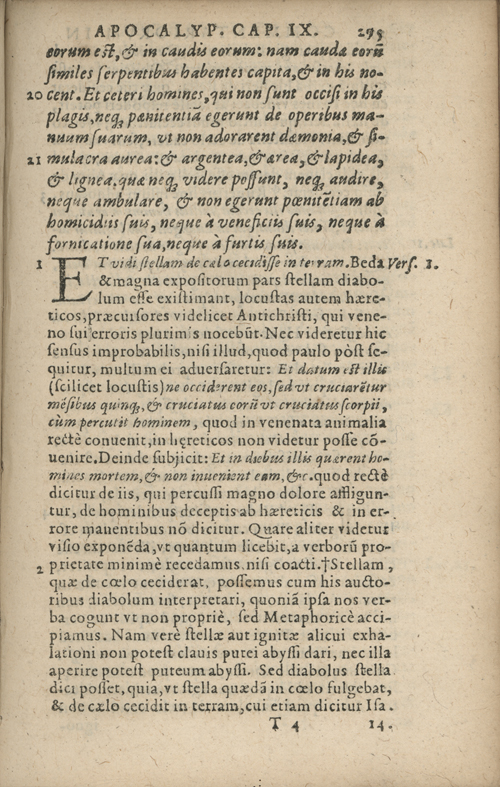 APOCALYP. CAP. IX. 295
eorum est, & in caudis eorum: nam caudæ eorũ
similes serpentibus habentes capita, & in his no-
20 cent. Et ceteri homines, qui non sunt occisi in his
plagis, neq; pœnitentiã egerunt de operibus ma-
nuum suarum, vt non adorarent dæmonia, & si-
21 mulacra aurea: & argentea, & ærea, & lapidea,
& lignea, quæ neq; videre possunt, neq; audire,
neque ambulare, & non egerunt pœnitẽtiam ab
homicidiis suis, neque à veneficiis suis, neque à
fornicatione sua, neque à furtis suis.
1 ET vidi stellam de cælo cecidisse in terram. Beda Vers. 1.
& magna expositorum pars stellam diabo-
lum esse existimant, locustas autem hære-
ticos, præcursores videlicet Antichristi, qui vene-
no sui erroris plurimis nocebũt. Nec videretur hic
sensus improbabilis, nisi illud, quod paulo pòst se-
quitur, multum ei aduersaretur: Et datum est illis
(scilicet locustis) ne occiderent eos, sed vt cruciarẽtur
mẽsibus quinq;, & cruciatus eorũ vt cruciatus scorpii,
cùm percutit hominem, quod in venenata animalia
rectè conuenit, in hęreticos non videtur posse cō-
uenire. Deinde subjicit: Et in diebus illis quærent ho-
mines mortem, & non inuenient eam, &c. quod rectè
dicitur de iis, qui percussi magno dolore affligun-
tur, de hominibus deceptis ab hæreticis & in er-
rore manentibus nō dicitur. Quare aliter videtur
visio exponẽda, vt quantum licebit, a verborũ pro-
prietate minimè recedamus nisi coacti. †Stellam,
2 quæ de cœlo ceciderat, possemus cum his aucto-
ribus diabolum interpretari, quoniã ipsa nos ver-
ba cogunt vt non propriè, sed Metaphoricè acci-
piamus. Nam verè stellæ aut ignitæ alicui exha-
lationi non potest clauis putei abyssi dari, nec illa
aperire potest puteum abyssi. Sed diabolus stella
dici posset, quia, vt stella quædã in cœlo fulgebat,
& de cælo cecidit in terram, cui etiam dicitur Isa.
T 4 14.